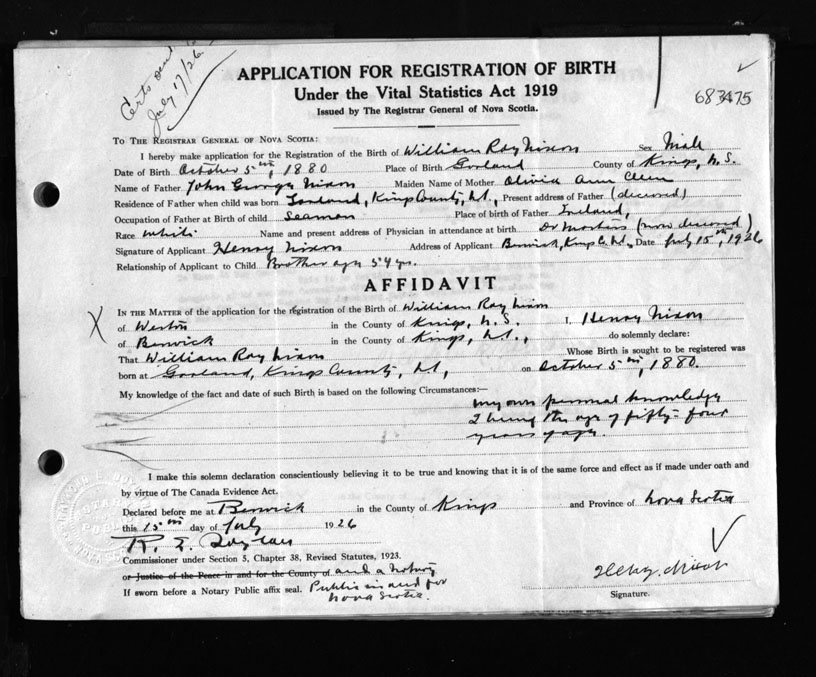 Certs send
July 17/26
APPLICATION FOR REGISTRATION OF BIRTH
Under the Vital Statistics Act 1919
Issued by The Registrar General of Nova Scotia.
683475
TO THE REGISTRAR GENERAL OF NOVA SCOTIA:
I hereby make application for the Registration of the Birth of William Ray Nixon Sex Male
Date of Birth October 5th, 1880 Place of Birth Garland County of Kings, N.S.
Name of Father John George Nixon Maiden Name of Mother Olivia Ann
Residence of Father when child was born Garland, King County, N.S., Present address of Father (deceased)
Occupation of Father at Birth of child Seaman Place of Birth of Father Ireland,
Race White Name and present address of Physician in attendance at birth Dr (now deceased)
Signature of Applicant Henry Nixon Address of Applicant Berwick, Kings Co. N.S., Date July 15th, 1926
Relationship of Applicant to Child Brother age 54 yrs.
AFFIDAVIT
X
IN THE MATTER of the application for the registration of the Birth of William Ray Nixon
of Weston in the County of Kings, N.S. I, Henry Nixon
of Berwick in the County of Kings, N.S., do solemnly declare:
That William Ray Nixon Whose Birth is sought to be registered was
born at Garland, Kings County, N.S., on October 5th, 1880.
My knowledge of the fact and date of such Birth is based on the following Circumstances:—
my own personal knowledge
I being the age of fifty-four
years of age.
I make this solemn declaration conscientiously believing it to be true and knowing that it is of the same force and effect as if made under oath and
by virtue of The Canada Evidence Act.
Declared before me at Berwick in the County of Kings and Province of Nova Scotia
this 15th day of July 1926
R. E.
Commissioner under Section 5, Chapter 38, Revised Statutes, 1923.
or Justice of the Peace in and for the County of and a Notary
If sworn before a Notary Public affix seal. Public in and for
Nova Scotia.
Henry Nixon
Signature.